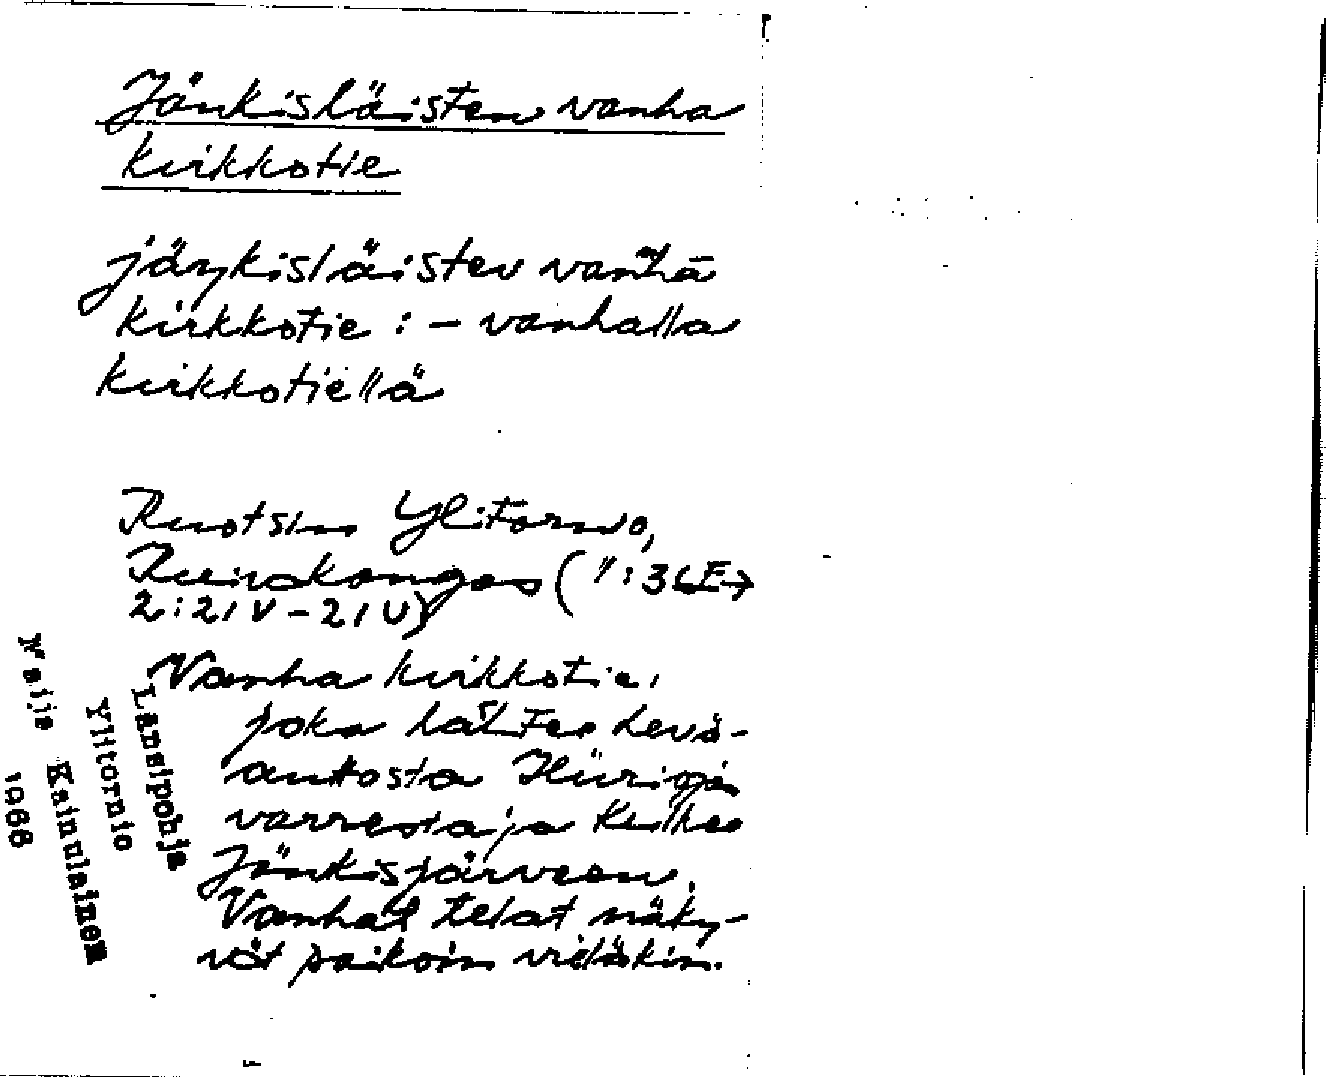 Jänkisläisten vanha
kirkkotie
jäŋkisläisten vanha
kirkkotie : – vanhalla
kirkkotiellä
Ruotsin Ylitornio,
Kuivakangas ( " : 3LE →
2 : 21 V – 21 U)
Vanha kirkkotie,
joka lähtee
varresta ja kulkee
Jänkisjärveen.
Vanhat telat näky-
vät paikoin vieläkin.
Länsipohja
Ylitornio
Maija Kainulainen
1968